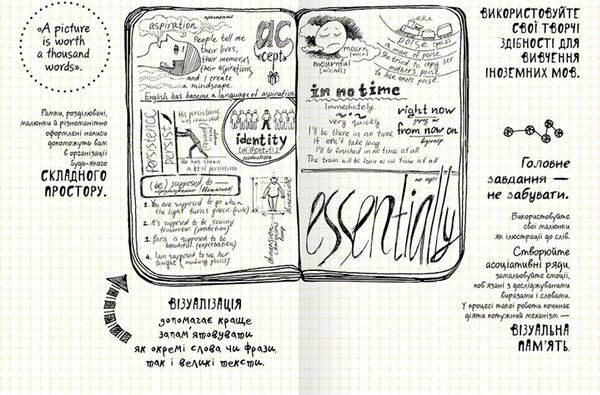 «A picture
is worth
a thousand
words».
Рамки, розділювачі,
малюнки й різноманітно
оформлені написи
допоможуть вам
в організації
будь-якого
СКЛАДНОГО
ПРОСТОРУ.
aspiration
People tell me
their lives,
their memories
their aspirations,
and I create
a mindscape.
English has become a language of aspiration
ac
cept
persistence
persist
The persistence
was rewarded
He has shown
a persistence
identity
(be) supposed to
1. You are supposed to go when
the light turns green (rule)
2. It's supposed to be sunny
tomorrow (prediction)
3. Paris is supposed to be
beautiful (expectation)
4. I am supposed to see her
tonight (making plans)
dimension
mourn
mournful
poise
a man of poise
She tried to copy her
mother's poise
to lose one's poise
in no time
Immediately
very quickly
I'll be there in no time
it won't take long
I'll be finished in no time at all
The train will be here in no time at all
right now
from now on
essentially
ВІЗУАЛІЗАЦІЯ
допомагає краще
запам'ятовувати
як окремі слова чи фрази,
так і великі тексти.
ВИКОРИСТОВУЙТЕ
СВОЇ ТВОРЧІ
ЗДІБНОСТІ ДЛЯ
ВИВЧЕННЯ
ІНОЗЕМНИХ МОВ.
Головне
завдання —
не забувати.
Використовуйте
свої малюнки
як ілюстрації до слів.
Створюйте
асоціативні ряди,
замальовуйте емоції,
пов'язані з досліджуваними
виразами і словами.
У процесі такої роботи починає
діяти потужний механізм —
ВІЗУАЛЬНА
ПАМ'ЯТЬ.